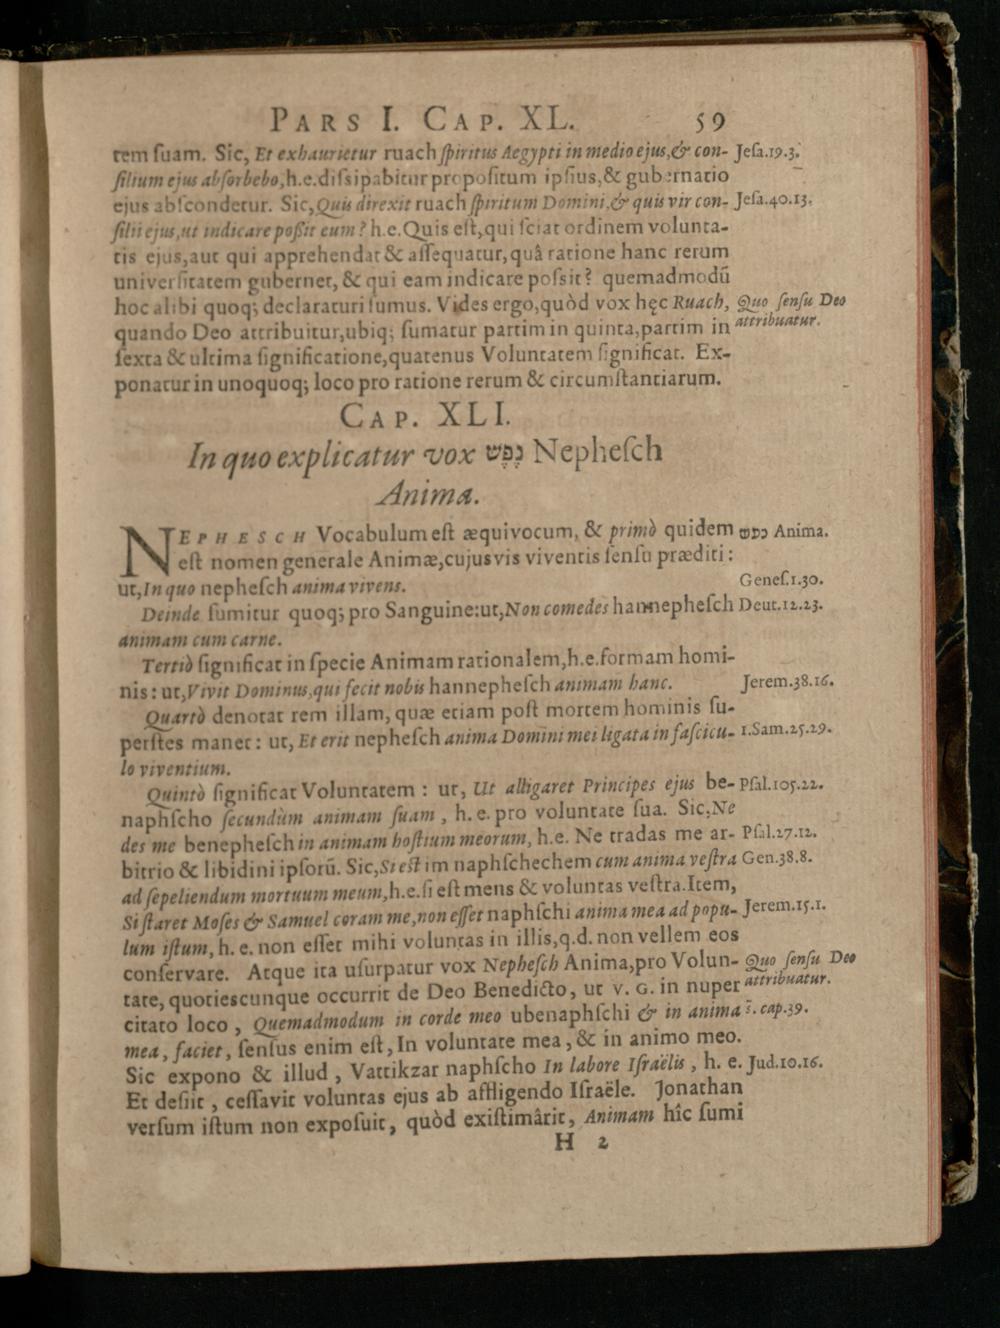 PARS I. CAP. XL. 59
tem ſuam. Sic, Et exhaurietur ruach ſpiritus Aegypti in medio ejus,& con- Jeſa.19.3.
ſilium ejus abſorbebo,h.e.diſsipabitur propoſitum ipſius,& gubernatio
ejus abſcondetur. Sic,Quis direxit ruach ſpiritum Domini,& quis vir con- Jeſa.40.13.
ſilii ejus,ut indicare poßit eum? h.e.Quis eſt,qui ſciat ordinem volunta-
tis ejus,aut qui apprehendat & aſſequatur,quâ ratione hanc rerum
univerſitatem gubernet, & qui eam indicare poſsit? quemadmodũ
hoc alibi quoq; declaraturi ſumus. Vides ergo,quòd vox hęc Ruach, Quo ſenſu Deo
quando Deo attribuitur,ubiq; ſumatur partim in quinta,partim in attribuatur.
ſexta & ultima ſignificatione,quatenus Voluntatem ſignificat. Ex-
ponatur in unoquoq; loco pro ratione rerum & circumſtantiarum.
CAP. XLI.
In quo explicatur vox נֶפֶש Nepheſch
Anima.
NEPHESCH Vocabulum eſt æquivocum, & primò quidem נפש Anima.
eſt nomen generale Animæ,cujusvis viventis ſenſu præditi:
ut,In quo nepheſch anima vivens. Geneſ.1.30.
Deinde ſumitur quoq; pro Sanguine:ut,Non comedes hannepheſch Deut.12.23.
animam cum carne.
Tertiò ſignificat in ſpecie Animam rationalem,h.e.formam homi-
nis: ut,Vivit Dominus,qui fecit nobis hannepheſch animam hanc. Jerem.38.16.
Quartò denotat rem illam, quæ etiam poſt mortem hominis ſu-
perſtes manet: ut, Et erit nepheſch anima Domini mei ligata in faſcicu- 1.Sam.25.29.
lo viventium.
Quintò ſignificat Voluntatem : ut, Ut alligaret Principes ejus be- Pſal.105.22.
naphſcho ſecundùm animam ſuam, h. e. pro voluntate ſua. Sic,Ne
des me benepheſch in animam hoſtium meorum, h.e. Ne tradas me ar- Pſal.27.12.
bitrio & libidini ipſorũ. Sic,Si eſt im naphſchechem cum anima veſtra Gen.38.8.
ad ſepeliendum mortuum meum,h.e.ſi eſt mens & voluntas veſtra.Item,
Si ſtaret Moſes & Samuel coram me,non eſſet naphſchi anima mea ad popu- Jerem.15.1.
lum iſtum, h. e. non eſſet mihi voluntas in illis,q.d. non vellem eos
conſervare. Atque ita uſurpatur vox Nepheſch Anima,pro Volun- Quo ſenſu Deo
tate, quotiescunque occurrit de Deo Benedicto, ut v. G. in nuper attribuatur.
citato loco, Quemadmodum in corde meo ubenaphſchi & in anima cap.39.
mea, faciet, ſenſus enim eſt, In voluntate mea, & in animo meo.
Sic expono & illud, Vattikzar naphſcho In labore Iſraëlis, h. e. Jud.10.16.
Et deſiit, ceſſavit voluntas ejus ab affligendo Iſraële. Jonathan
verſum iſtum non expoſuit, quòd exiſtimârit, Animam hîc ſumi
H 2